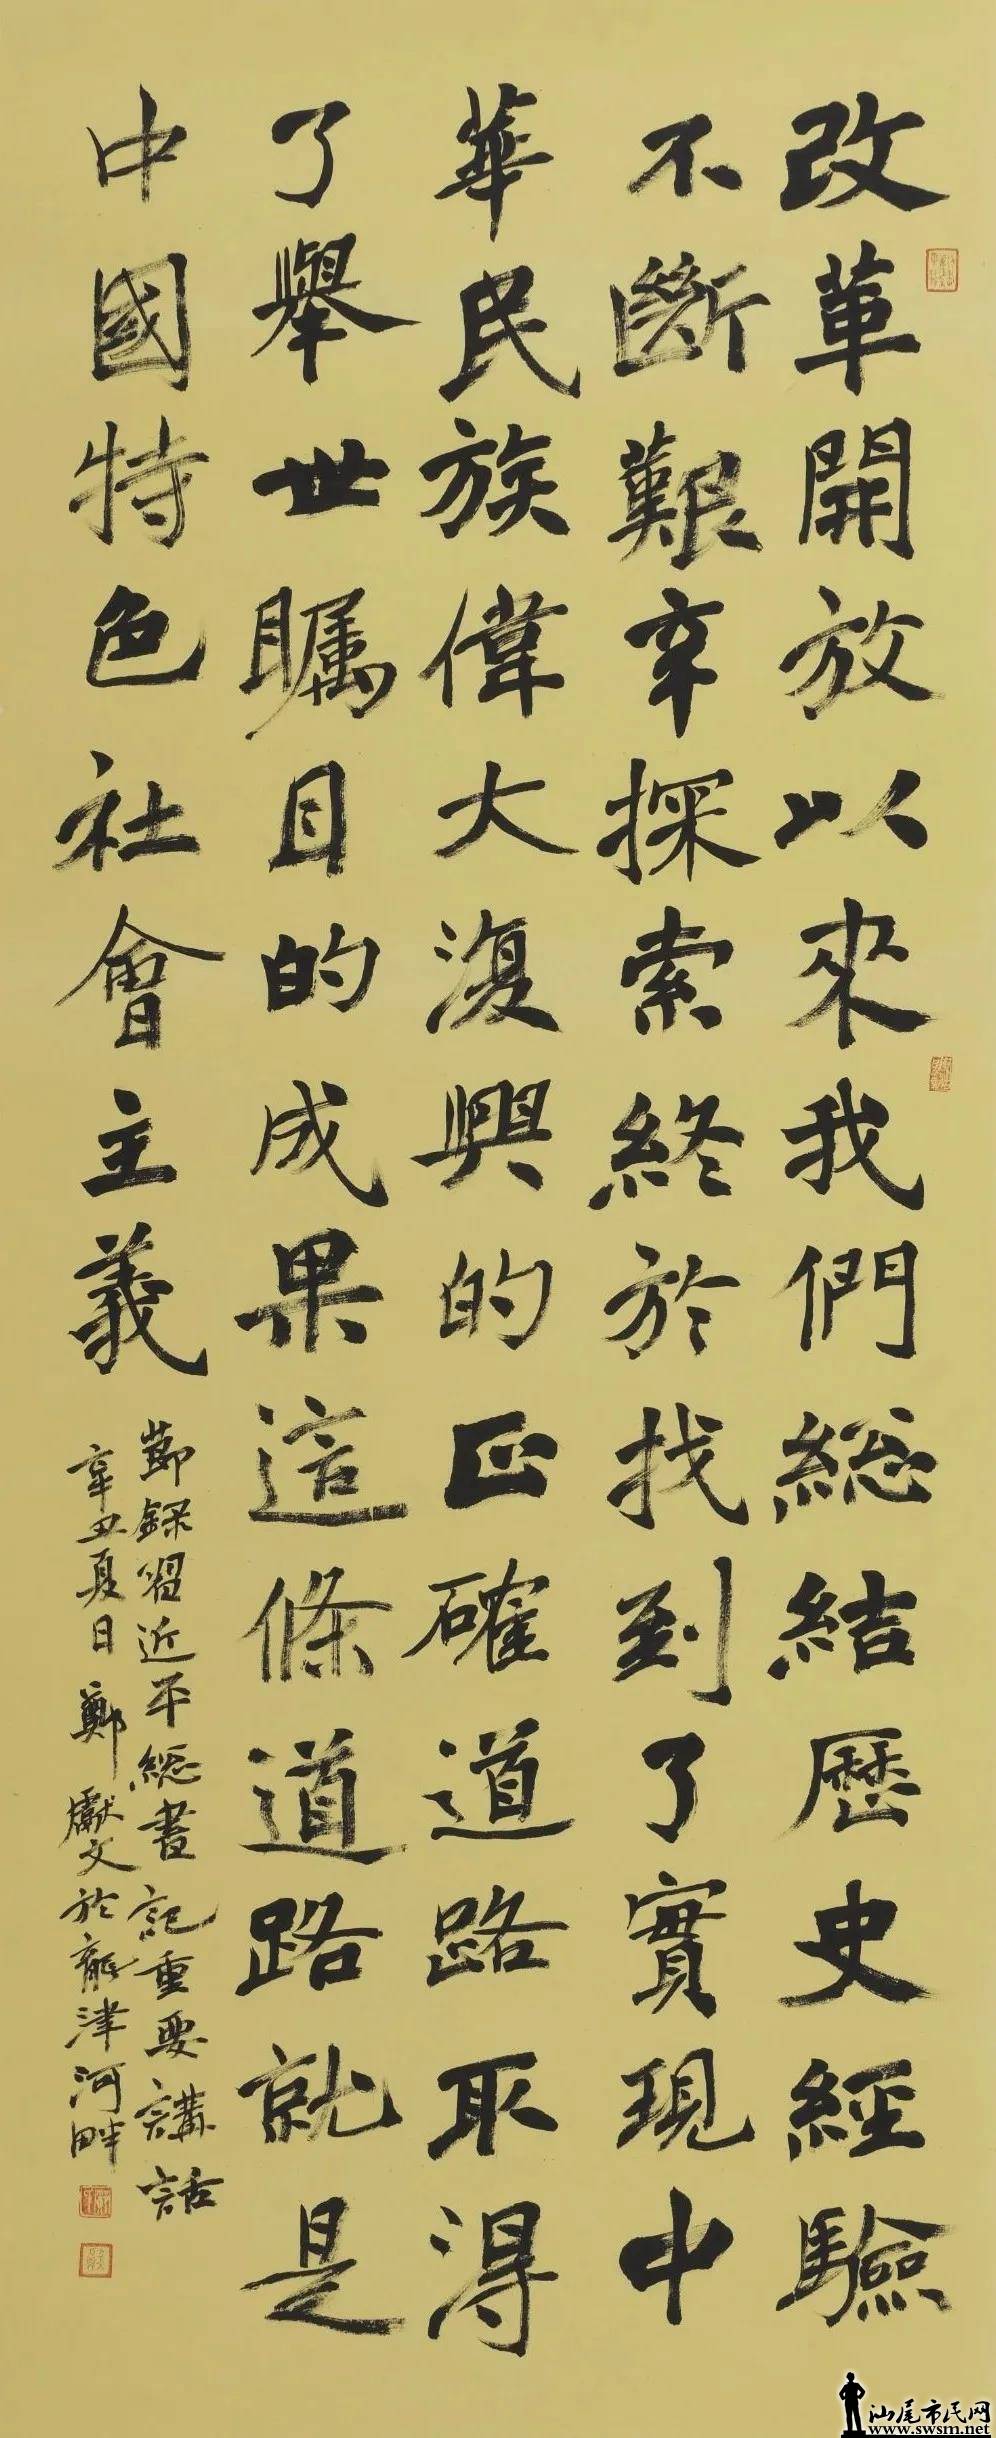 改革開放以來我們総結歷史經驗
不斷艱辛探索終於找到了實現中
華民族偉大復興的正確道路取得
了舉世矚目的成果這條道路就是
中國特色社會主義
節録習近平総書記重要講話
辛丑夏日鄭獻文於龍津河畔
汕尾市民网
www.swsm.net